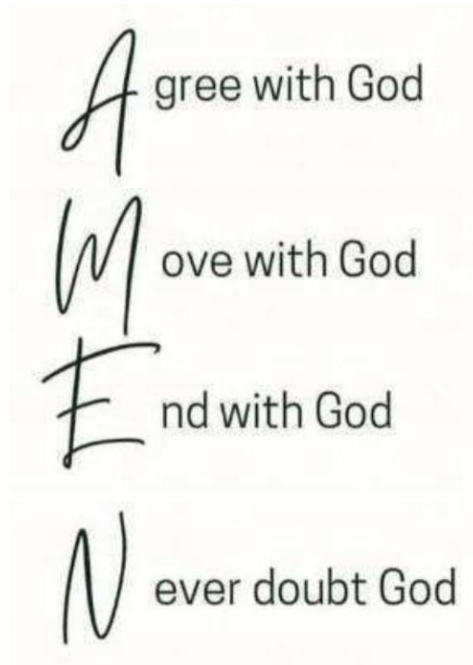 Agree with God
Move with God
End with God
Never doubt God